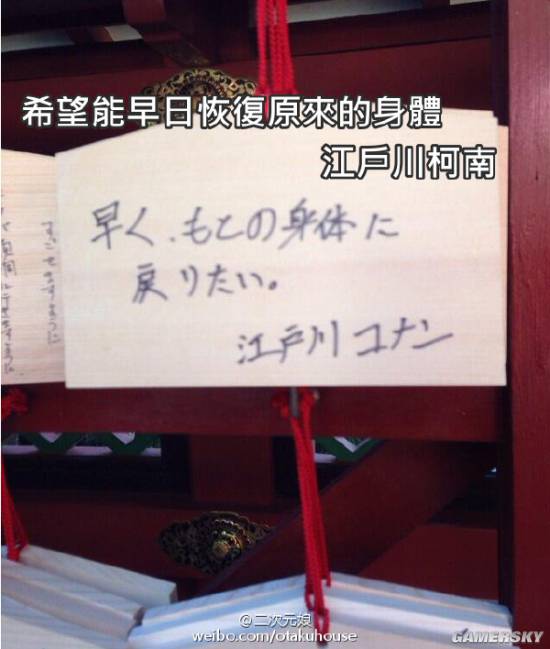 希望能早日恢復原來的身體
江戶川柯南
早く、もとの身体に
戻りたい。
江戸川コナン
@二次元娘
weibo.com/otakuhouse
GAMERSKY